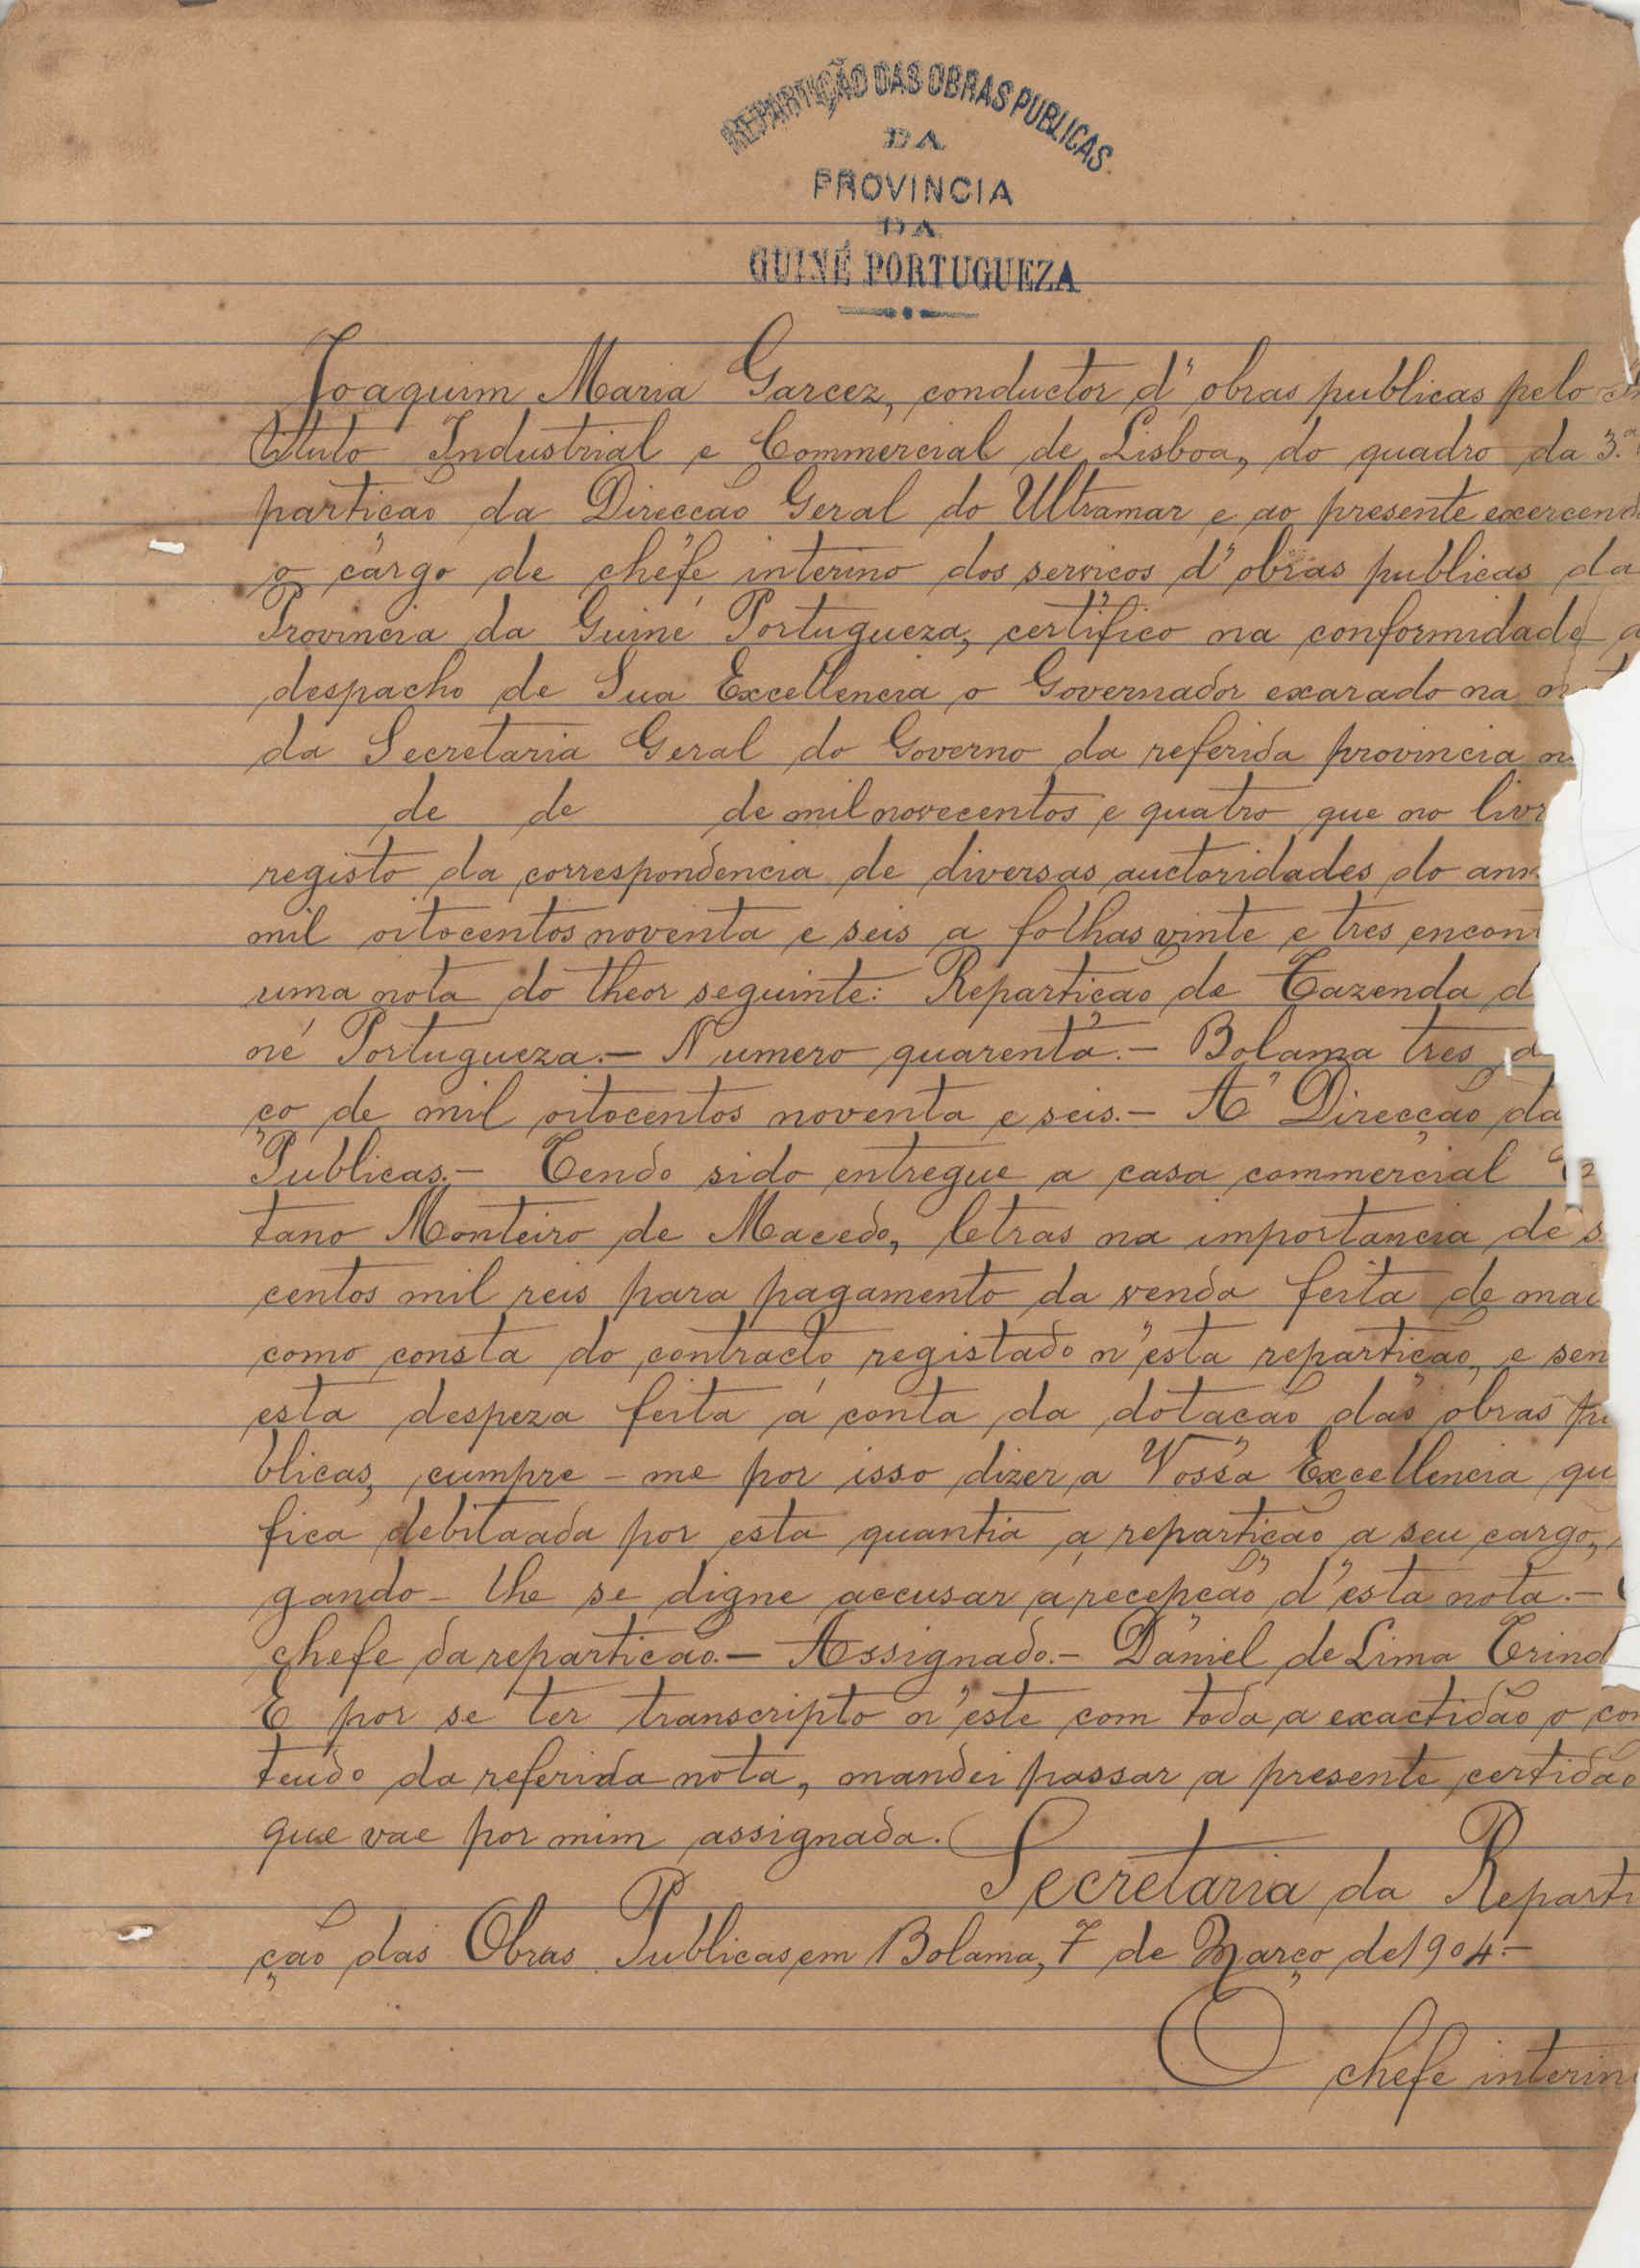 REPARTIÇÃO DAS OBRAS PUBLICAS
DA
PROVINCIA
DA
GUINÉ PORTUGUEZA
Joaquim Maria Garcez, conductor d'obras publicas pelo
tituto Industrial e Commercial de Lisboa, do quadro da 3.ª
partição da Direcção Geral do Ultramar e ao presente exercend
o cargo de chefe interino dos serviços d'obras publicas da
Provincia da Guiné Portugueza, certifico na conformidade
despacho de Sua Excellencia o Governador exarado na
da Secretaria Geral do Governo da referida provincia n
de de de mil novecentos e quatro que no livr
registo da correspondencia de diversas auctoridades do ann
mil oitocentos noventa e seis a folhas vinte e tres encont
uma nota do theor seguinte: Repartição de Fazenda d
né Portugueza.- Numero quarenta.- Bolama tres d
ço de mil oitocentos noventa e seis.- A' Direcção da
Publicas.- Tendo sido entregue a casa commercial
tano Monteiro de Macedo, letras na importancia de s
centos mil reis para pagamento da venda feita de mai
como consta do contracto registado n'esta repartição, e sen
esta despeza feita á conta da dotação das obras pu
blicas, cumpre-me por isso dizer a Vossa Excellencia qu
fica debitaada por esta quantia a repartição a seu cargo,
gando-lhe se digne accusar a recepção d'esta nota.-
chefe da repartição.- Assignado.- Daniel de Lima Trind
E por se ter transcripto n'este com toda a exactidão o con
teudo da referida nota, mandei passar a presente certidão
que vae por mim assignada.
Secretaria da Reparti
ção das Obras Publicas em Bolama, 7 de Março de 1904.-
O chefe interin